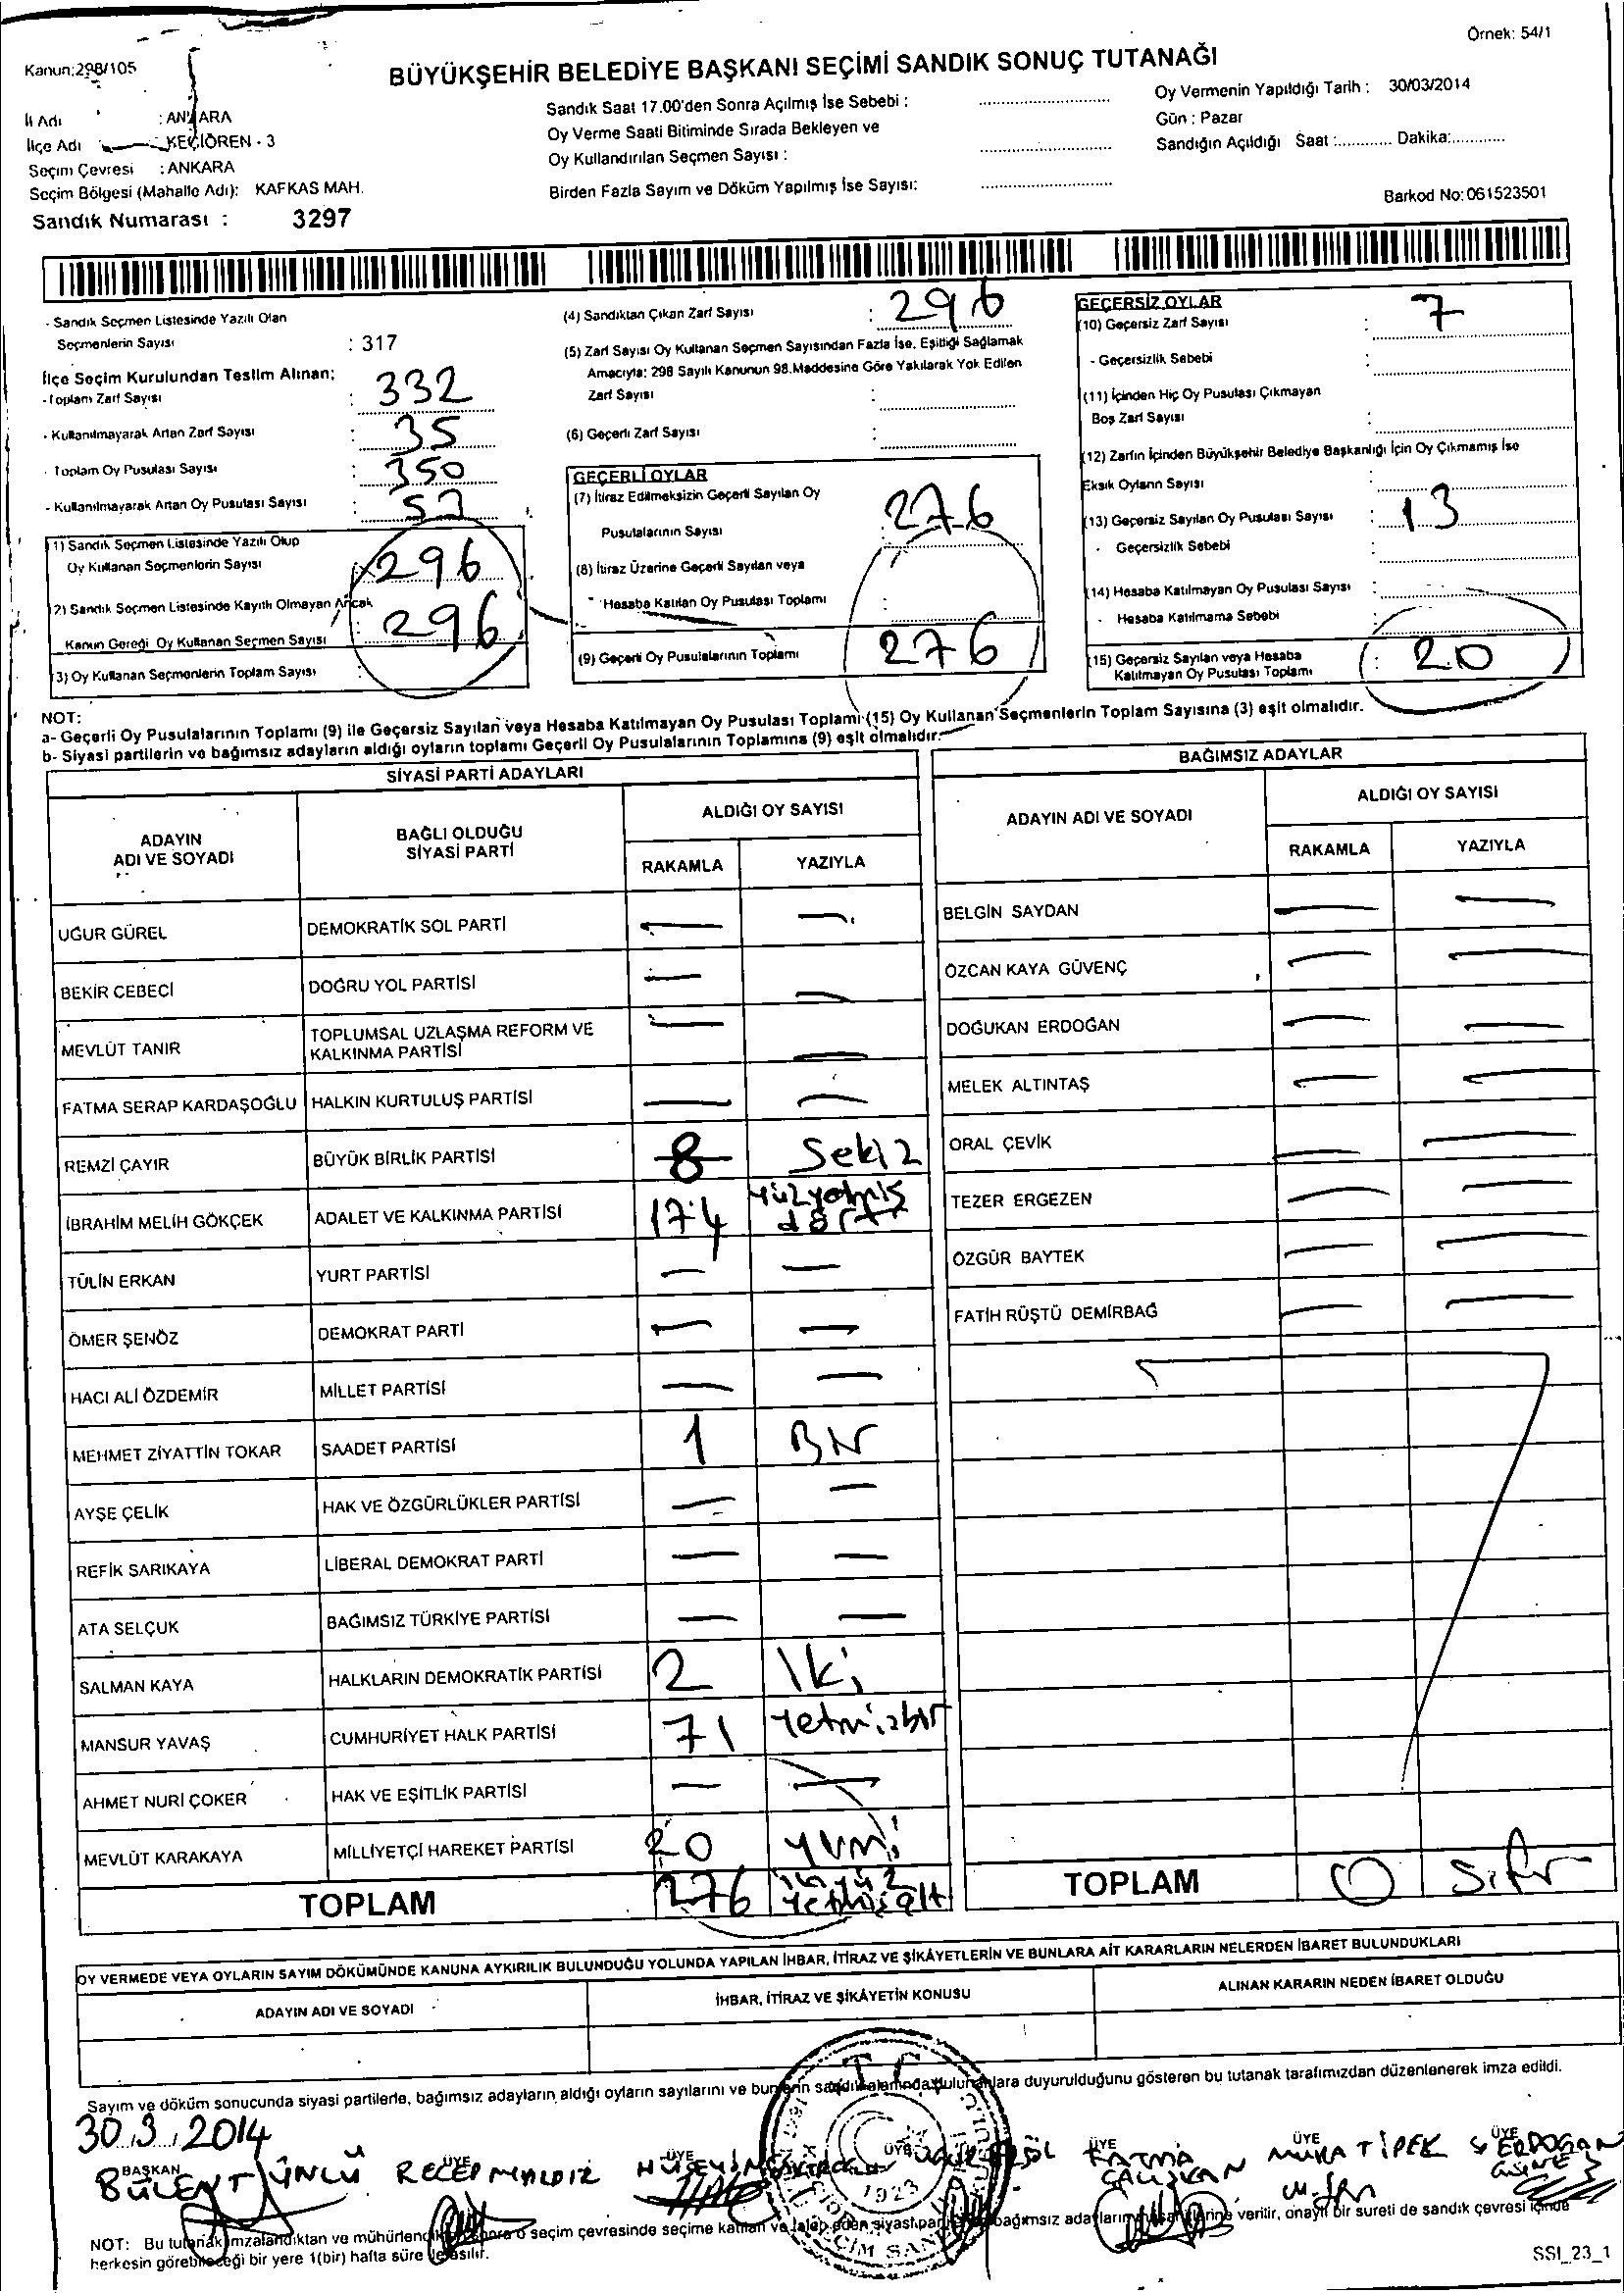 Örnek: 54/1
Kanun:298/105
BÜYÜKŞEHİR BELEDİYE BAŞKANI SEÇİMİ SANDIK SONUÇ TUTANAĞI
İl Adı : ANKARA
İlçe Adı KEÇİÖREN - 3
Seçim Çevresi : ANKARA
Seçim Bölgesi (Mahalle Adı): KAFKAS MAH.
Sandık Numarası : 3297
Sandık Saat 17.00'den Sonra Açılmış İse Sebebi :
Oy Verme Saati Bitiminde Sırada Bekleyen ve
Oy Kullandırılan Seçmen Sayısı :
Birden Fazla Sayım ve Döküm Yapılmış İse Sayısı:
Oy Vermenin Yapıldığı Tarih : 30/03/2014
Gün : Pazar
Sandığın Açıldığı Saat :............ Dakika:............
Barkod No: 061523501
- Sandık Seçmen Listesinde Yazılı Olan
Seçmenlerin Sayısı : 317
İlçe Seçim Kurulundan Teslim Alınan:
- Toplam Zarf Sayısı : 332
- Kullanılmayarak Artan Zarf Sayısı : 35
- Toplam Oy Pusulası Sayısı : 350
- Kullanılmayarak Artan Oy Pusulası Sayısı :
(1) Sandık Seçmen Listesinde Yazılı Olup
Oy Kullanan Seçmenlerin Sayısı 296
(2) Sandık Seçmen Listesinde Kayıtlı Olmayan Ancak
Kanun Gereği Oy Kullanan Seçmen Sayısı : 296
(3) Oy Kullanan Seçmenlerin Toplam Sayısı :
(4) Sandıktan Çıkan Zarf Sayısı : 296
(5) Zarf Sayısı Oy Kullanan Seçmen Sayısından Fazla İse, Eşitliği Sağlamak
Amacıyla; 298 Sayılı Kanunun 98.Maddesine Göre Yakılarak Yok Edilen
Zarf Sayısı :
(6) Geçerli Zarf Sayısı :
GEÇERLİ OYLAR
(7) İtiraz Edilmeksizin Geçerli Sayılan Oy
Pusulalarının Sayısı : 276
(8) İtiraz Üzerine Geçerli Sayılan veya
Hesaba Katılan Oy Pusulası Toplamı :
(9) Geçerli Oy Pusulalarının Toplamı : 276
GEÇERSİZ OYLAR
(10) Geçersiz Zarf Sayısı : 7
- Geçersizlik Sebebi :
(11) İçinden Hiç Oy Pusulası Çıkmayan
Boş Zarf Sayısı :
(12) Zarfın İçinden Büyükşehir Belediye Başkanlığı İçin Oy Çıkmamış İse
Eksik Oyların Sayısı :
(13) Geçersiz Sayılan Oy Pusulası Sayısı : 13
- Geçersizlik Sebebi :
(14) Hesaba Katılmayan Oy Pusulası Sayısı :
- Hesaba Katılmama Sebebi :
(15) Geçersiz Sayılan veya Hesaba
Katılmayan Oy Pusulası Toplamı : 20
NOT:
a- Geçerli Oy Pusulalarının Toplamı (9) ile Geçersiz Sayılan veya Hesaba Katılmayan Oy Pusulası Toplamı (15) Oy Kullanan Seçmenlerin Toplam Sayısına (3) eşit olmalıdır.
b- Siyasi partilerin ve bağımsız adayların aldığı oyların toplamı Geçerli Oy Pusulalarının Toplamına (9) eşit olmalıdır.
SİYASİ PARTİ ADAYLARI
ADAYIN ADI VE SOYADI BAĞLI OLDUĞU SİYASİ PARTİ ALDIĞI OY SAYISI
RAKAMLA YAZIYLA
UĞUR GÜREL DEMOKRATİK SOL PARTİ — —
BEKİR CEBECİ DOĞRU YOL PARTİSİ — —
MEVLÜT TANIR TOPLUMSAL UZLAŞMA REFORM VE KALKINMA PARTİSİ — —
FATMA SERAP KARDAŞOĞLU HALKIN KURTULUŞ PARTİSİ — —
REMZİ ÇAYIR BÜYÜK BİRLİK PARTİSİ 8 Sekiz
İBRAHİM MELİH GÖKÇEK ADALET VE KALKINMA PARTİSİ 174 yüzyetmiş dört
TÜLİN ERKAN YURT PARTİSİ — —
ÖMER ŞENÖZ DEMOKRAT PARTİ — —
HACI ALİ ÖZDEMİR MİLLET PARTİSİ — —
MEHMET ZİYATTİN TOKAR SAADET PARTİSİ 1 Bir
AYŞE ÇELİK HAK VE ÖZGÜRLÜKLER PARTİSİ — —
REFİK SARIKAYA LİBERAL DEMOKRAT PARTİ — —
ATA SELÇUK BAĞIMSIZ TÜRKİYE PARTİSİ — —
SALMAN KAYA HALKLARIN DEMOKRATİK PARTİSİ 2 İki
MANSUR YAVAŞ CUMHURİYET HALK PARTİSİ 71 Yetmişbir
AHMET NURİ ÇOKER HAK VE EŞİTLİK PARTİSİ — —
MEVLÜT KARAKAYA MİLLİYETÇİ HAREKET PARTİSİ 20 yirmi
TOPLAM 276 ikiyüz yetmişaltı
BAĞIMSIZ ADAYLAR
ADAYIN ADI VE SOYADI ALDIĞI OY SAYISI
RAKAMLA YAZIYLA
BELGİN SAYDAN — —
ÖZCAN KAYA GÜVENÇ — —
DOĞUKAN ERDOĞAN — —
MELEK ALTINTAŞ — —
ORAL ÇEVİK — —
TEZER ERGEZEN — —
ÖZGÜR BAYTEK — —
FATİH RÜŞTÜ DEMİRBAĞ — —
TOPLAM 0 Sıfır
OY VERMEDE VEYA OYLARIN SAYIM DÖKÜMÜNDE KANUNA AYKIRILIK BULUNDUĞU YOLUNDA YAPILAN İHBAR, İTİRAZ VE ŞİKÂYETLERİN VE BUNLARA AİT KARARLARIN NELERDEN İBARET BULUNDUKLARI
ADAYIN ADI VE SOYADI İHBAR, İTİRAZ VE ŞİKÂYETİN KONUSU ALINAN KARARIN NEDEN İBARET OLDUĞU
Sayım ve döküm sonucunda siyasi partilerle, bağımsız adayların aldığı oyların sayılarını ve bunların sandık alanında bulunanlara duyurulduğunu gösteren bu tutanak tarafımızdan düzenlenerek imza edildi.
30.3.2014
BAŞKAN ÜYE ÜYE ÜYE ÜYE ÜYE ÜYE
BÜLENT ÜNLÜ RECEP HÜSEYİN FATMA ÇALIŞKAN MURAT İPEK ERDOĞAN
T.C.
1923
NOT: Bu tutanak imzalandıktan ve mühürlendikten sonra o seçim çevresinde seçime katılan ve talep eden siyasi parti bağımsız adayların verilir, onaylı bir sureti de sandık çevresi içinde
herkesin görebileceği bir yere 1(bir) hafta süre ile asılır.
SSI_23_1